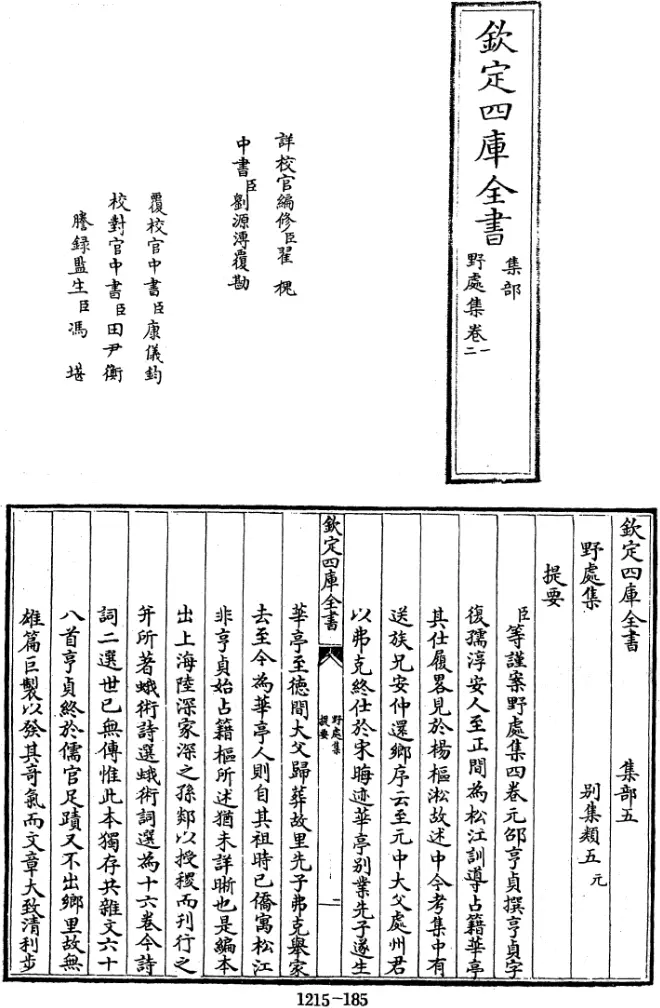 欽定四庫全書
集部
野處集卷一
二
詳校官編修臣翟槐
中書臣劉源溥覆勘
覆校官中書臣康儀鈞
校對官中書臣田尹衡
謄錄監生臣馮堪
欽定四庫全書 集部五
野處集 別集類五 元
提要
臣等謹案野處集四卷元邵亨貞撰亨貞字
復孺淳安人至正間為松江訓導占籍華亭
其仕履畧見於楊樞淞故述中今考集中有
送族兄安仲還鄉序云至元中大父處州君
以弗克終仕於宋晦迹華亭别業先子遂生
欽定四庫全書
野處集
提要
二
華亭至徳間大父歸葬故里先子弗克舉家
去至今為華亭人則自其祖時已僑寓松江
非亨貞始占籍樞所述猶未詳晰也是編本
出上海陸深家深之孫郯以授稷而刊行之
并所著蛾術詩選蛾術詞選為十六卷今詩
詞二選世已無傳惟此本獨存共雜文六十
八首亨貞終於儒官足蹟又不出鄉里故無
雄篇巨製以發其奇氣而文章大致清利步
1215-185